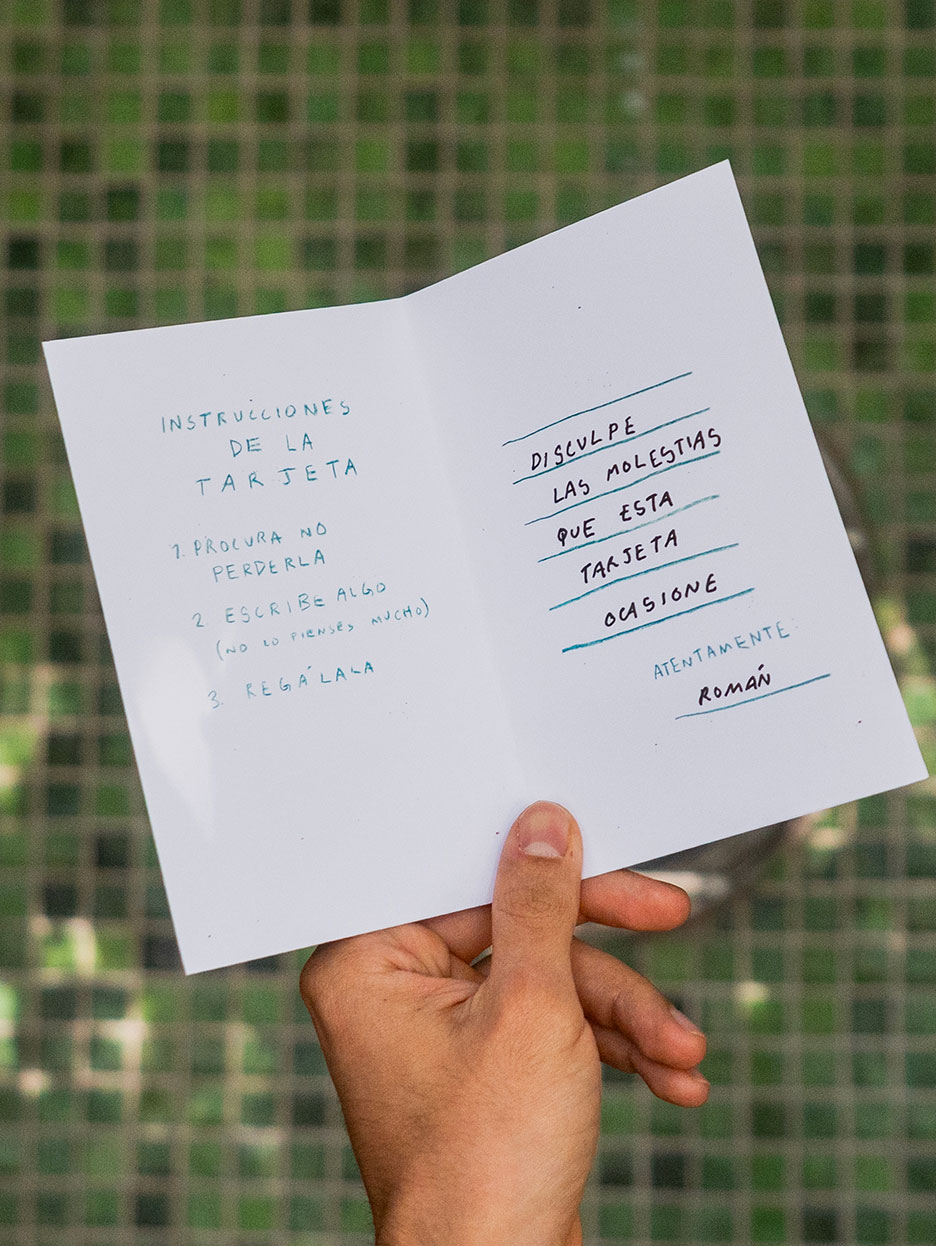 INSTRUCCIONES
DE LA
TARJETA
1. PROCURA NO
PERDERLA
2. ESCRIBE ALGO
(NO LO PIENSES MUCHO)
3. REGÁLALA
DISCULPE
LAS MOLESTIAS
QUE ESTA
TARJETA
OCASIONE
ATENTAMENTE:
ROMÁN